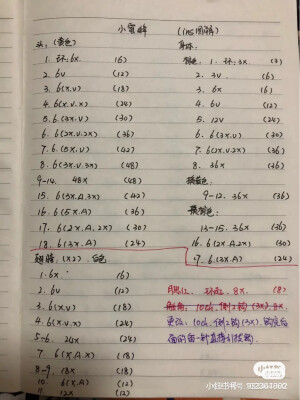 小蜜蜂 (ins图稿)
头: (黄色)
1. 环: 6x (6)
2. 6v (12)
3. 6(x.v) (18)
4. 6(x.v.x) (24)
5. 6.(3x.v) (30)
6. 6(2x.v.2x) (36)
7. 6.(5x.v) (42)
8. 6(3x.v.3x) (48)
9-14. 48x (48)
15. 6(3x.A.3x) (42)
16. 6(5x.A) (36)
17. 6(2x.A.2x) (30)
18. 6(3x.A) (24)
翅膀: (x2). 白色
1. 6x. (6)
2. 6v (12)
3. 6(x.v) (18)
4. 6(x.v.x) (24)
5-6. 24x (24)
7. 6(x.A.x) (18)
8-9. 18x (18)
10. 6(x.A) (12)
12x (12)
身体:
1. 环: 3x (3)
2. 3v (6)
3. 6x (6)
4. 6v (12)
5. 12v (24)
6. 6.(3x.v) (30)
7. 6(2x.v.2x) (36)
8. 36x (36)
换黄色:
9-12. 36x (36)
13-15. 36x (36)
16. 6(2x.A.2x) (30)
17. 6.(3x.A) (24)
腮红: 环起. 8x. (8)
触角: 10ch. 倒2钩(3x). 8x
更改: 10ch. 倒2钩(3x)
小红书
小红书号: 992304892